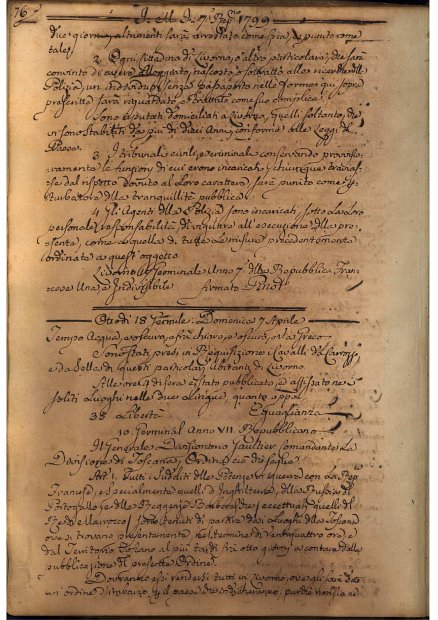 76
due giorni, altrimenti sarà arrestato come spia, e punito come
tale.
2. Ogni cittadino di Livorno, o altro particolare, che sarà
convinto di avere alloggiato, nascosto, o sottratto alle ricerche della
Polizia, un individuo senza passaporto nelle forme qui sopra
prescritte sarà riguardato, e trattato come suo complice.
Sono reputati domiciliati a Livorno, quelli soltanto, che
vi sono stabiliti da più di dieci Anni, conforme alle Leggi del
Paese.
3. I tribunali civili, e criminali conservando provviso-
riamente le funzioni di cui erono incaricati, chiunque
dal rispetto dovuto al loro carattere, sarà punito come per-
turbatore della tranquillità pubblica.
4. Gli Agenti della Polizia sono incaricati, sotto la loro
personale responsabilità di invigilare all'esecuzione della pre-
sente, come di quella di tutte le misure precedentemente
ordinate a quest'oggetto.
Livorno Germinale Anno 7. della Repubblica Fran-
cese Una, e Indivisibile firmato
18 Domenica 7 Aprile
Tempo Acqua, e oscuro, e
Sono stati presi in Requisizione i Cavalli da Carrozza
e da Sella di questi particolari abitanti di Livorno
Alle ore 4 di sera è stato pubblicato, ed affisso nei
soliti Luoghi nelle due Lingue, quanto appo
38 Libertà Eguaglianza
10. Germinal Anno VII. Repubblicano
Il Generale Gaultier Comandante la
Divisione di Toscana, Ordina ciò che segue
Art. 1. Tutti i Sudditi delle Potenze in guerra con la Rep.
Francese, e specialmente quelli d'Inghilterra, della Russia, di
Portogallo, e delle Reggenze Barbaresche, eccettuati quelli del
Re di Marocco, sono tenuti di partire da i Luoghi della Toscana
ove si trovano presentemente, nel termine di ventiquattro ore, e
dal Territorio Toscano al più tardi fra otto giorni a contare dalla
pubblicazione del presente Ordine.
Dovranno essi rendersi tutti in Livorno, ove gli sarà dato
un ordine d'imbarco per il paese che indicheranno, purché non sia ne